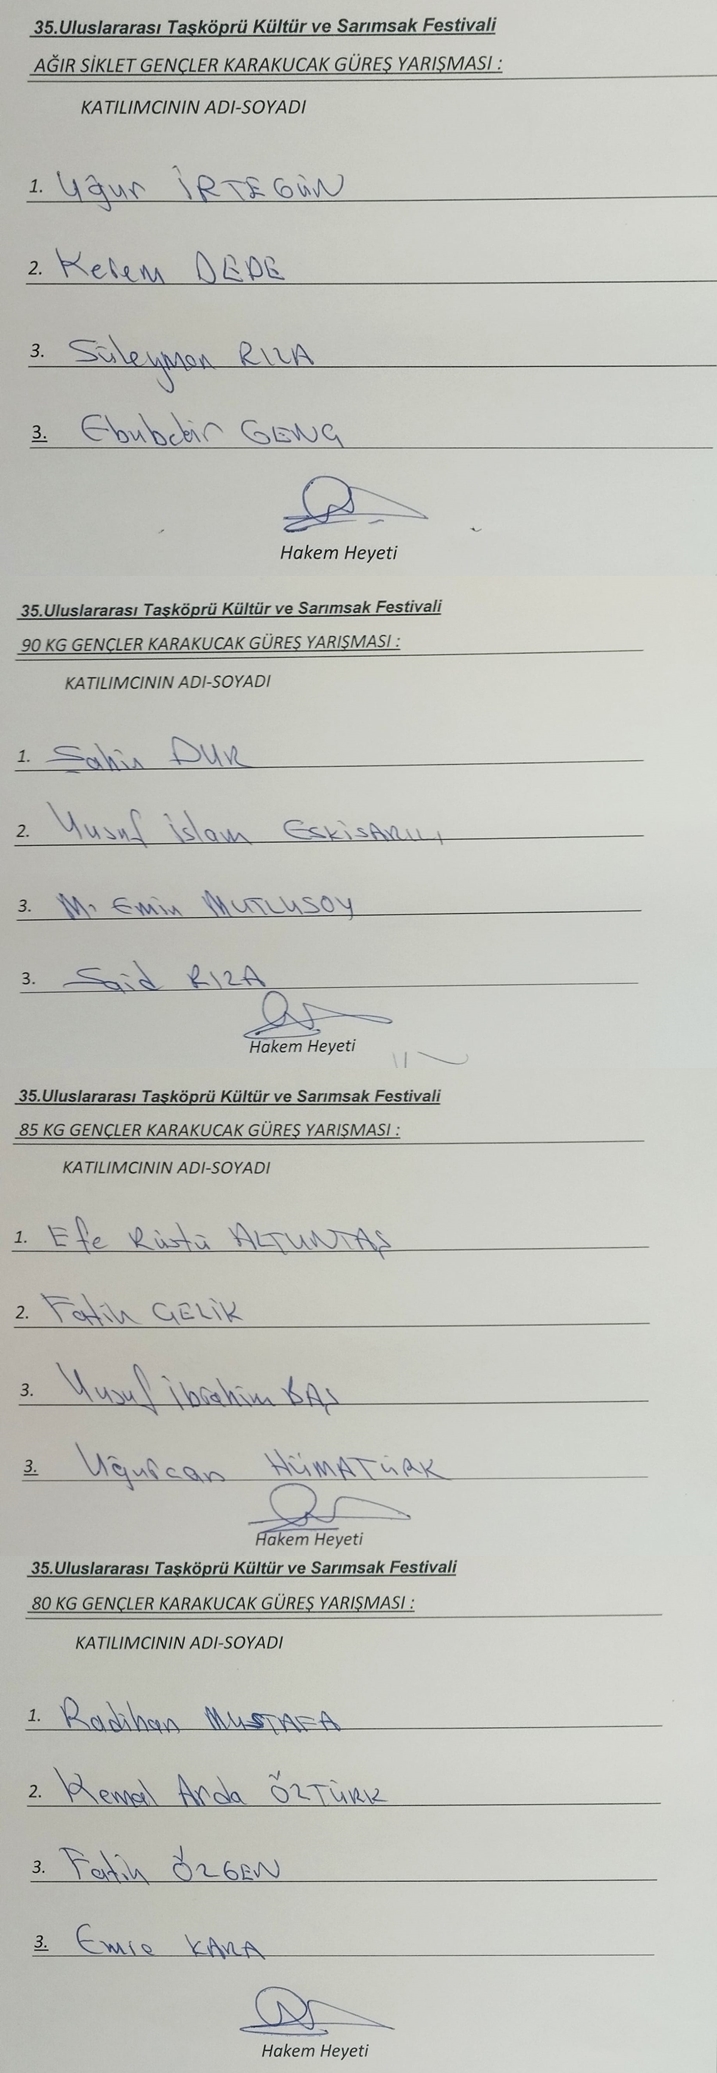 35.Uluslararası Taşköprü Kültür ve Sarımsak Festivali
AĞIR SİKLET GENÇLER KARAKUCAK GÜREŞ YARIŞMASI :
KATILIMCININ ADI-SOYADI
1. Uğur İRTEGÜN
2. Kerem DEDE
3. Süleyman RIZA
3. Ebubekir GENÇ
Hakem Heyeti
35.Uluslararası Taşköprü Kültür ve Sarımsak Festivali
90 KG GENÇLER KARAKUCAK GÜREŞ YARIŞMASI :
KATILIMCININ ADI-SOYADI
1. Şahin DUR
2. Yusuf islam ESKiSARILI
3. M. Emin MUTLUSOY
3. Said RIZA
Hakem Heyeti
35.Uluslararası Taşköprü Kültür ve Sarımsak Festivali
85 KG GENÇLER KARAKUCAK GÜREŞ YARIŞMASI :
KATILIMCININ ADI-SOYADI
1. Efe Rüştü ALTUNTAŞ
2. Fatih ÇELİK
3. Yusuf ibrahim BAŞ
3. Uğurcan HÜMATÜRK
Hakem Heyeti
35.Uluslararası Taşköprü Kültür ve Sarımsak Festivali
80 KG GENÇLER KARAKUCAK GÜREŞ YARIŞMASI :
KATILIMCININ ADI-SOYADI
1. Radihan MUSTAFA
2. Kemal Arda ÖZTÜRK
3. Fatih ÖZGEN
3. Emre KARA
Hakem Heyeti